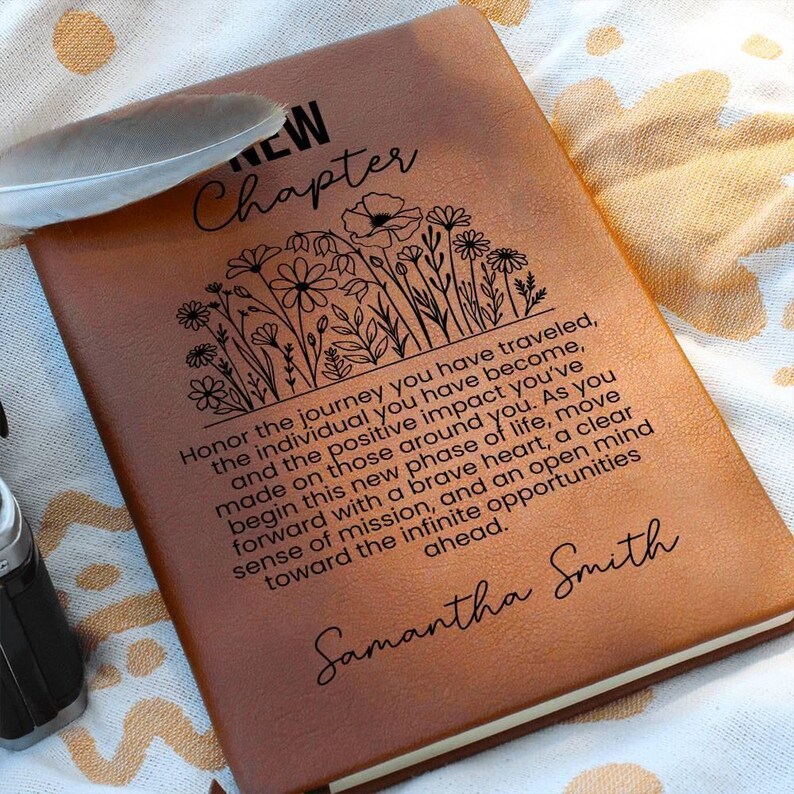 NEW
Chapter
Honor the journey you have traveled,
the individual you have become,
and the positive impact you've
made on those around you. As you
begin this new phase of life, move
forward with a brave heart, a clear
sense of mission, and an open mind
toward the infinite opportunities
ahead.
Samantha Smith